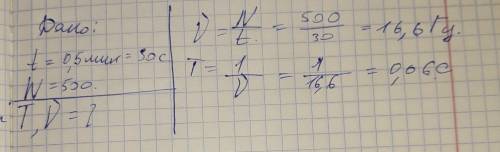 Дано:
t = 0,5 мин = 30 с
N = 500.
T, ν = ?
ν = N/t = 500/30 = 16,6 Гц.
T = 1/ν = 1/16,6 = 0,06 с